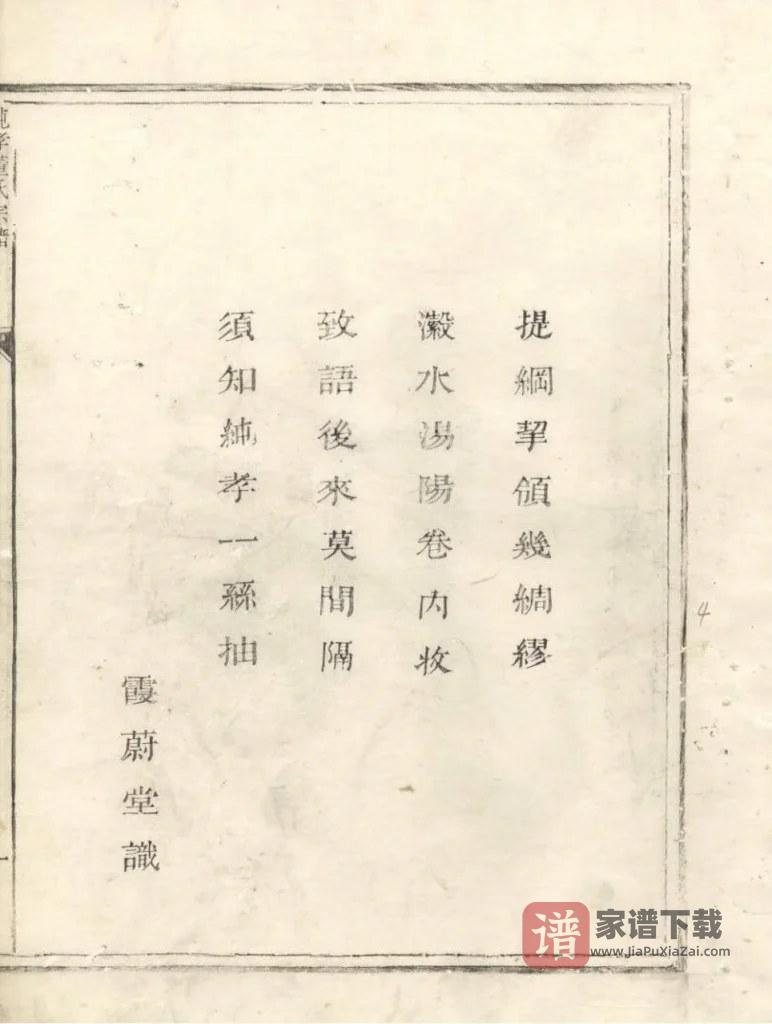 提綱挈領幾綢繆
瀫水湯陽卷內收
致語後來莫間隔
須知純孝一絲抽
霞蔚堂識
純孝董氏宗譜
4
谱 家谱下载
www.JiaPuXiaZai.com